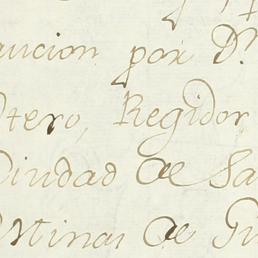 aucion por Dn.
Otero, Regidor
Ciudad de Sa
Minas de Gu